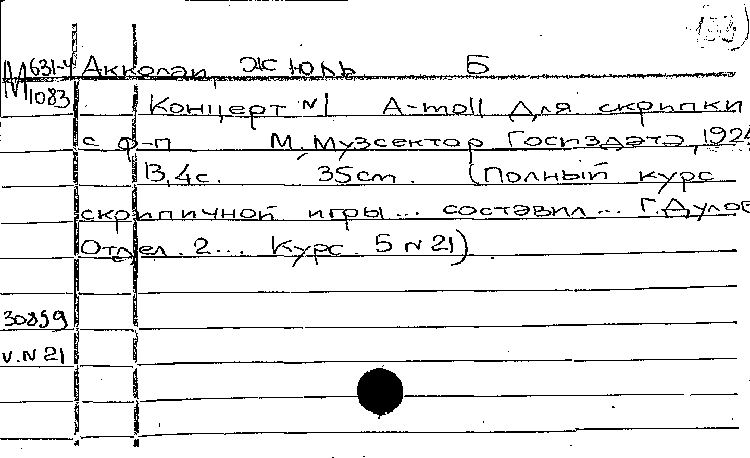 (133)
М 631-4 Акколаи, Жюль Б
1083
Концерт N1 A-moll для скрипки
с ф-п М. Музсектор Госиздата, 1924
13,4с. 35cm. (Полный курс
скрипичной игры... составил... Г.Дулов
Отдел. 2... Курс 5 N 21)
30859
v.N 21